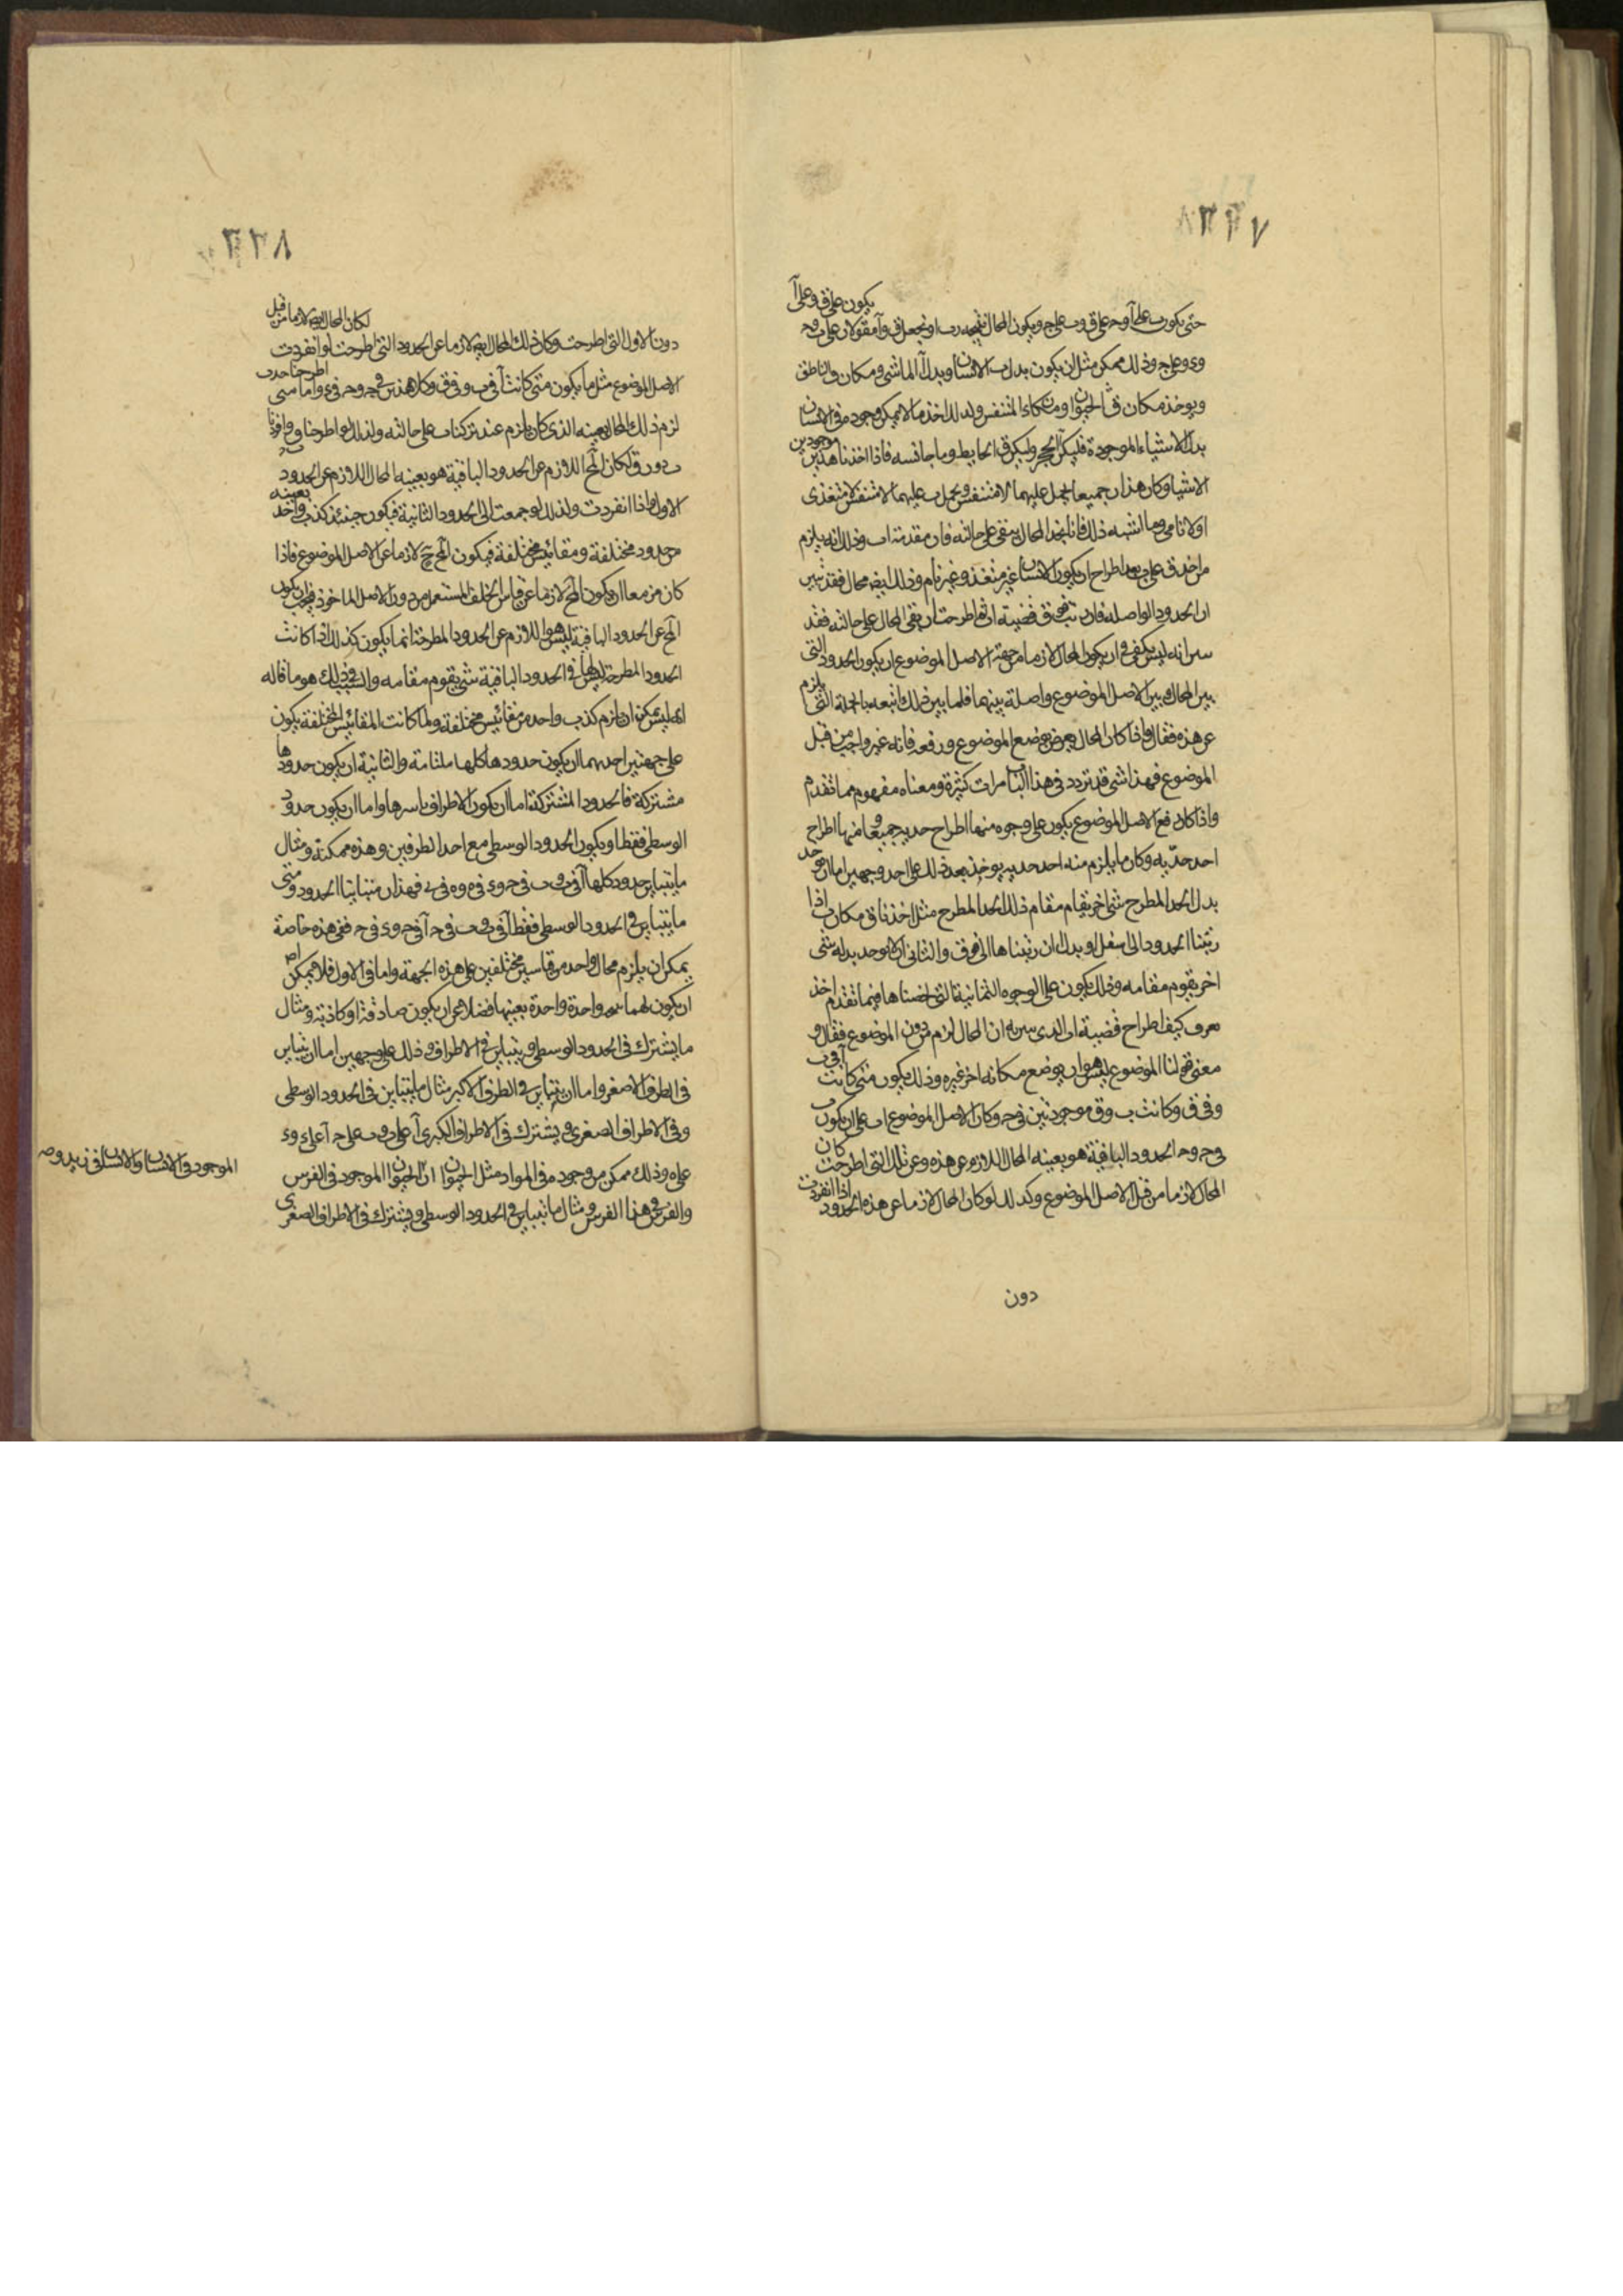 ٣٢٧
يكون على ق وعلى آ
حتى يكون ب على آ و ح على ق و ب على ج ويكون المحال نتيجة د ب او نجعل ق و آ مقولان على ب و ح
و ى و على ج وذلك ممكن مثل ان يكون بدل ب الانسان وبدل آ الماشى ومكان والناطق
ويوخذ مكان ق الحيوان ومكان المتنفس ولذلك اخذ ما لا يمكن وجوده فى الانسان
بدل الاشياء الموجودة فليكن آ الحجر وليكن ق الحايط وما جانسه فاذا اخذنا هذين موجودين
الاشيا وكان هذان جميعا يحمل عليهما لا متنفس ويحمل ب عليهما لا متنفس لا متغذى
او لا نامى وما اشبه ذلك فانا نجد المحال يبقى على حالته فان مقدمة اب وذلك انه يلزم
من اخذ ق على ب بعد اطراح ان يكون الانسان غير متغذ وغير نام وذلك ايضا محال فقد تبين
ان الحدود الواصلة فان قضية ان اطرحت ان يبقى المحال على حالته فقد
انه ليس يكفى فى ان يكون المحال لازما من جهة الاصل الموضوع ان يكون الحدود التى
بين المحال وبين الاصل الموضوع واصلة بينهما فلما بين ذلك اتبعه بالجملة التى يلزم
عن هذه فقال واذا كان المحال يعرض بوضع الموضوع ورفعه فانه غير واجب من قبل
الموضوع فهذا شى قد تردد فى هذا الباب مرات كثيرة ومعناه مفهوم مما تقدم
واذا كان رفع الاصل الموضوع يكون على وجوه منها اطراح حديه جميعا ومنها اطراح
احد حدّيه وكان ما يلزم منه احد حديه يوخذ بعد ذلك على احد وجهين اما ان يوخذ
بدل الحد المطرح شى اخر يقام مقام ذلك الحد المطرح مثل اخذنا ق مكان ب اذا
رتبنا الحدود الى اسفل او بدل ان رتبناها الى فوق والثانى ان لا يوجد بدله شى
اخر يقوم مقامه وذلك يكون على الوجوه الثمانية التى احصيناها فيما تقدم اخذ
يعرف كيف اطراح قضية ان المحال لزم من دون الموضوع فقال و
معنى قولنا الموضوع ليس هو ان يوضع مكانه اخر غيره وذلك يكون متى كانت آ فى ب
و فى ق وكانت ب و ق موجودتين فى ح وكان الاصل الموضوع اب على ان يكون ب
فى ح و ح الحدود الباقية هو بعينه المحال اللازم عن هذه وعن تلك التى اطرحت كان
المحال لازما من قبل الاصل الموضوع وكذلك لو كان المحال لازما عن هذه الحدود اذا انفردت
دون
٣٢٨
لكان المحال ايضا لازما من قبل
دون الاول التى اطرحت وكان ذلك المحال ايضا لازما عن الحدود التى اطرحت لو انفردت
الاصل الموضوع مثل ما يكون متى كانت آ فى ب و فى ق وكلا هذين فى ح و ح فى ء واما متى اطرحنا حد ب
لزم ذلك المحال بعينه الذى كان يلزم عند تركنا ب على حالته ولذلك لو اطرحنا ق واقررنا
ب دون ق لكان المح اللازم عن الحدود الباقية هو بعينه المحال اللازم عن الحدود
الاول اذا انفردت ولذلك لو جمعت الى الحدود الثانية فيكون حينئذ كذب واحد بعينه
من حدود مختلفة ومقائيس مختلفة فيكون المح ح لازما عن الاصل الموضوع فاذا
كان مزمعا ان يكون المح لازما عن قياس الخلف المستعمل من دون الاصل الماخوذ فيجب ان يكون
المح عن الحدود الباقية ليس هو اللازم عن الحدود المطرحة انما يكون كذلك اذا كانت
الحدود المطرحة ليس لها فى الحدود الباقية شى يقوم مقامه والسبب فى ذلك هو ما قاله
انه ليس يمكن ان يلزم كذب واحد من مقائيس مختلفة ولما كانت المقائيس المختلفة يكون
على جهتين احديهما ان يكون حدودها كلها متباينة والثانية ان يكون حدودها
مشتركة فالحدود المشتركة اما ان يكون الاطراف باسرها واما ان يكون حدود
الوسطى فقط او يكون الحدود الوسطى مع احد الطرفين وهذه ممكنة ومثال
ما يتباين حدود كلها آ فى ب و ب فى ح و ء فى ه و ه فى ر فهذان متباينا الحدود ومتى
ما يتباين فى الحدود الوسطى فقط آ فى ب و ب فى ح آ فى ء و ء فى ح ففى هذه خاصة
يمكن ان يلزم محال واحد من قياسين مختلفين على هذه الجهة واما فى الاول فلا يمكن اصلا
ان يكون لهما نتيجة واحدة بعينها فضلا عن ان يكون صادقة او كاذبة ومثال
ما يشترك فى الحدود الوسطى ويتباين فى الاطراف وذلك على وجهين اما ان يتباين
فى الطرف الاصغر واما ان يتباين فى الطرف الاكبر مثال ما يتباين فى الحدود الوسطى
وفى الاطراف الصغرى ويشترك فى الاطراف الكبرى آ على ب و ب على ح آ على ء و ء
على ه وذلك ممكن من وجوده فى المواد مثل الحيوان ان الحيوان الموجود فى الفرس
والفرس فى هذا الفرس ومثال ما يتباين فى الحدود الوسطى ويشترك فى الاطراف الصغرى
الموجود فى الانسان والانسان فى زيد وصه